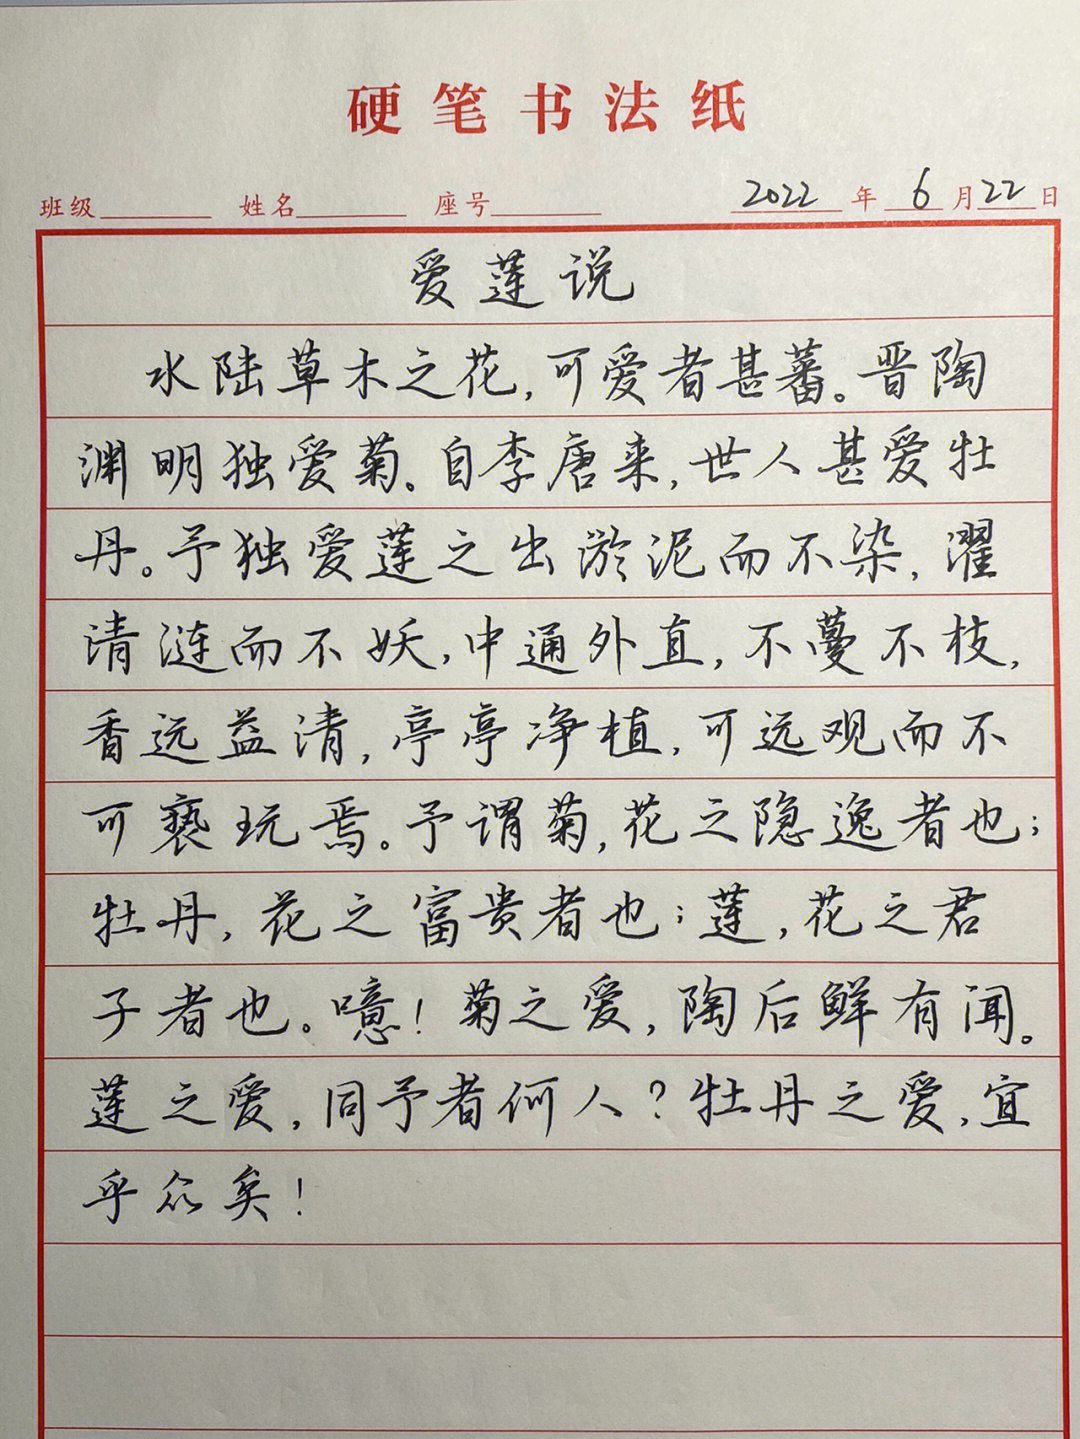 硬笔书法纸
班级 姓名 座号 2022年6月22日
爱莲说
水陆草木之花,可爱者甚蕃。晋陶
渊明独爱菊。自李唐来,世人甚爱牡
丹。予独爱莲之出淤泥而不染,濯
清涟而不妖,中通外直,不蔓不枝,
香远益清,亭亭净植,可远观而不
可亵玩焉。予谓菊,花之隐逸者也;
牡丹,花之富贵者也;莲,花之君
子者也。噫!菊之爱,陶后鲜有闻。
莲之爱,同予者何人?牡丹之爱,宜
乎众矣!